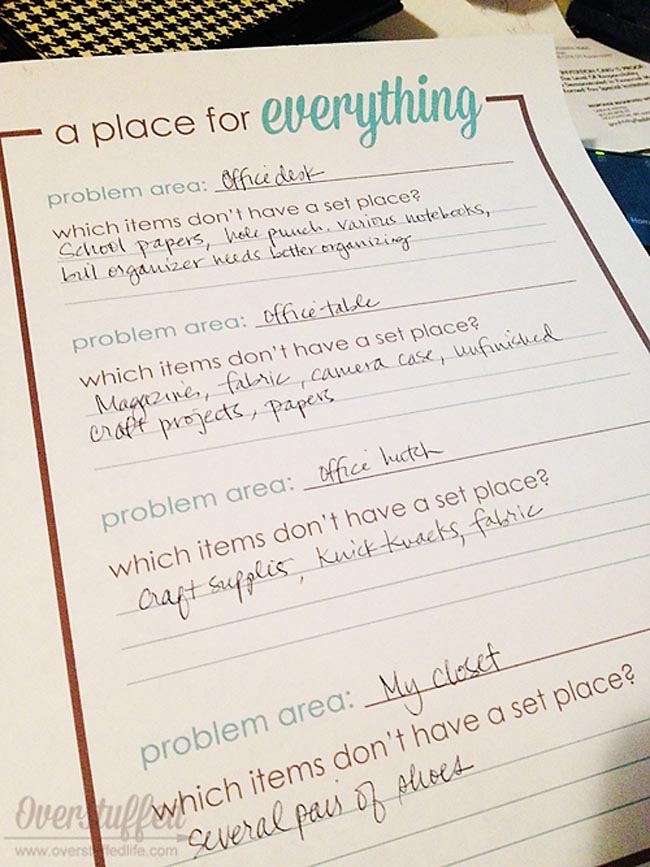 a place for everything
problem area: Office desk
which items don't have a set place?
School papers, hole punch, various notebooks,
bill organizer needs better organizing
problem area: office table
which items don't have a set place?
Magazines, fabric, camera case, unfinished
craft projects, papers
problem area: office hutch
which items don't have a set place?
craft supplies, knick knacks, fabric
problem area: My closet
which items don't have a set place?
several pairs of shoes
Overstuffed
www.overstuffedlife.com